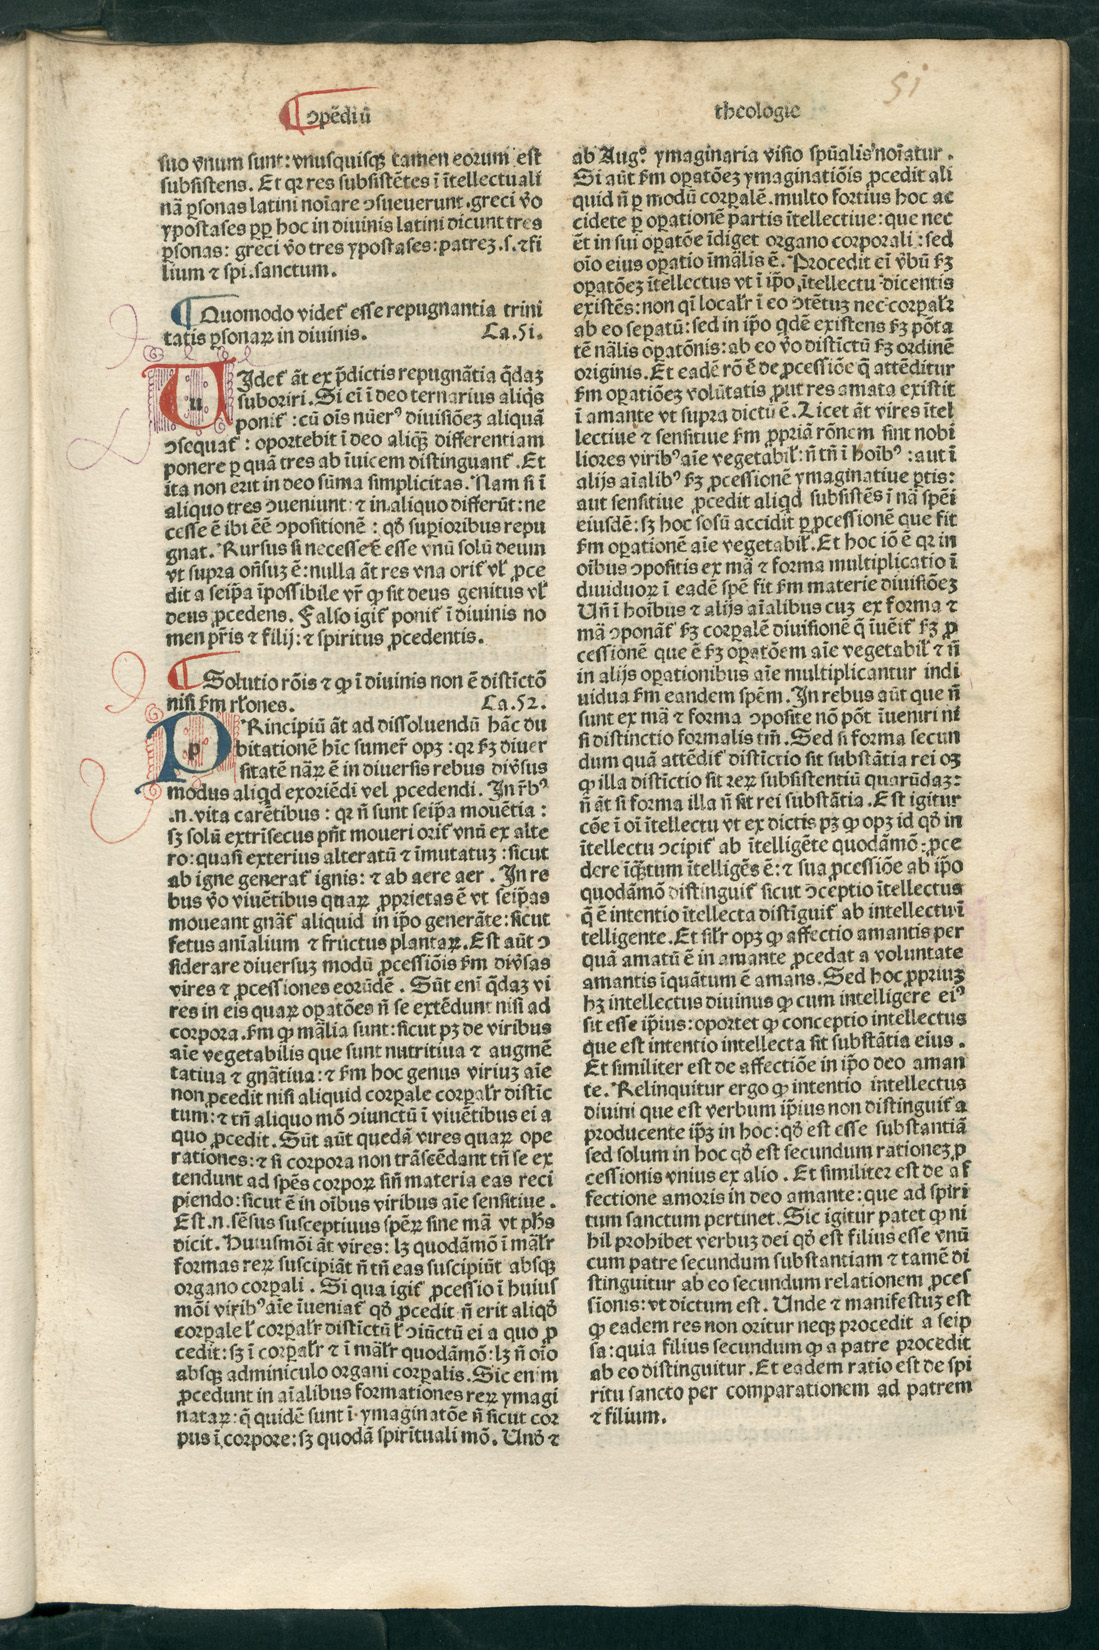 ɔpēdiū
theologie
51
suo vnum sunt: vnusquisqꝫ tamen eorum est
subsistens. Et qꝛ res subsistētes ī ītellectuali
nā ꝑsonas latini noīare ɔsueuerunt. greci v̄o
ypostases ꝓp̄ hoc in diuinis latini dicunt tres
ꝑsonas: greci v̄o tres ypostases: patreꝫ .s. ⁊ fi
lium ⁊ spi. sanctum.
Quomodo videt᷑ esse repugnantia trini
tatis ꝑsonaꝝ in diuinis. Ca. 51.
u
Idet᷑ āt ex p̄dictis repugnātia q̄daꝫ
suboriri. Si ei ī deo ternarius aliq̄s
ponit᷑: cū oīs nūerꝰ diuisiōeꝫ aliquā
ɔsequat᷑: oportebit ī deo aliqꝫ differentiam
ponere ꝑ quā tres ab īuicem distinguant᷑. Et
īta non erit in deo sūma simplicitas. Nam si ī
aliquo tres ɔueniunt: ⁊ in aliquo differūt: ne
cesse ē ibi ēē ɔpositionē: qd̄ suꝑioribus repu
gnat. Rursus si necesse ē esse vnū solū deum
vt supra on̄suꝫ ē: nulla āt res vna orit᷑ vl̓ ꝓce
dit a seip̄a īpossibile vr̄ ꝙ sit deus genitus vl̓
deus ꝓcedens. Falso igit᷑ ponit᷑ ī diuinis no
men pr̄is ⁊ filij: ⁊ spiritus ꝓcedentis.
Solutio rōis ⁊ ꝙ ī diuinis non ē distīctō
nisi ẜm rl̓ones. Ca. 52.
p
Rincipiū āt ad dissoluendū hāc du
bitationē hīc sumer̄ opꝫ: qꝛ ẜꝫ diuer
sitatē nāꝝ ē in diuersis rebus div̄sus
modus aliqd exoriēdi vel ꝓcedendi. In r̄bꝰ
.n. vita carētibus: qꝛ n̄ sunt seip̄a mouētia:
sꝫ solū extrīsecus pn̄t moueri orit᷑ vnū ex alte
ro: quasi exterius alteratū ⁊ īmutatuꝫ: sicut
ab igne generat᷑ ignis: ⁊ ab aere aer. In re
bus v̄o viuētibus quaꝝ ꝓprietas ē vt seip̄as
moueant gnāt᷑ aliquid in ip̄o generāte: sicut
fetus anīalium ⁊ fructus plantaꝝ. Est aūt ɔ
siderare diuersuꝫ modū ꝓcessiōis ẜm div̄sas
vires ⁊ ꝓcessiones eorūdē. Sūt eni q̄daꝫ vi
res in eis quaꝝ oꝑatōes n̄ se extēdunt nisi ad
corpora. ẜm ꝙ mālia sunt: sicut pꝫ de viribus
aīe vegetabilis que sunt nutritiua ⁊ augmē
tatiua ⁊ gnātiua: ⁊ ẜm hoc genus viriuꝫ aīe
non ꝓcedit nisi aliquid corꝑale corꝑalr̄ distīc
tum: ⁊ tn̄ aliquo mō ɔiunctū ī viuētibus ei a
quo ꝓcedit. Sūt aūt quedā vires quaꝝ ope
rationes: ⁊ si corpora non trāscēdant tn̄ se ex
tendunt ad spēs corpoꝝ sin̄ materia eas reci
piendo: sicut ē in oībus viribus aīe sensitiue.
Est .n. sēsus susceptiuus spēꝝ sine mā vt ph̄s
dicit. Huiusmōi āt vires: lꝫ quodāmō ī mālr̄
formas reꝝ suscipiāt n̄ tn̄ eas suscipiūt absqꝫ
organo corꝑali. Si qua igit᷑ ꝓcessio ī huius
mōi viribꝰ aīe īueniat᷑ qd̄ ꝓcedit n̄ erit aliqd̄
corꝑale l̓ corꝑalr̄ distīctū l̓ ɔiūctū ei a quo ꝓ
cedit: sꝫ ī corꝑalr̄ ⁊ ī mālr̄ quodāmō: lꝫ n̄ oīo
absqꝫ adminiculo organi corꝑalis. Sic enim
ꝓcedunt in aīalibus formationes reꝝ ymagi
nataꝝ: q̄ quidē sunt ī ymaginatōe n̄ sicut cor
pus ī corpore: sꝫ quodā spirituali mō. Unō ⁊
ab Augꝰ. ymaginaria visio spūalis noīatur.
Si aūt ẜm oꝑatōeꝫ ymaginatiōis ꝓcedit ali
quid n̄ ꝑ modū corꝑalē. multo fortius hoc ac
cidete ꝑ oꝑationē partis ītellectiue: que nec
ēt in sui oꝑatōe īdiget organo corporali: sed
oīo eius oꝑatio īmālis ē. Procedit ei v̄bū ẜꝫ
oꝑatōeꝫ ītellectus vt ī ip̄o ītellectu dicentis
existēs: non qī localr̄ ī eo ɔtētuꝫ nec corꝑalꝛ
ab eo seꝑatū: sed in ip̄o qdē existens ẜꝫ pōta
tē nālis oꝑatōnis: ab eo v̄o distīctū ẜꝫ ordinē
originis. Et eadē rō ē de ꝓcessiōe q̄ attēditur
ẜm oꝑatiōeꝫ volūtatis ꝓut res amata existit
ī amante vt supra dictū ē. Licet āt vires ītel
lectiue ⁊ sensitiue ẜm ꝓpriā rōnem sint nobi
liores viribꝰ aīe vegetabil̓: n̄ tn̄ ī hoībꝰ: aut ī
alijs aīalibꝰ ẜꝫ ꝓcessionē ymaginatiue ꝑtis:
aut sensitiue ꝓcedit aliqd subsistēs ī nā spēi
eiusdē: sꝫ hoc solū accidit ꝑ ꝓcessionē que fit
ẜm oꝑationē aīe vegetabil̓. Et hoc iō ē qꝛ in
oībus ɔpositis ex mā ⁊ forma multiplicatio ī
diuiduoꝝ ī eadē spē fit ẜm materie diuisiōeꝫ
Un̄ ī hoībus ⁊ alijs aīalibus cuꝫ ex forma ⁊
mā ɔponāt᷑ ẜꝫ corꝑalē diuisionē q̄ īuēit᷑ ẜꝫ ꝓ
cessionē que ē ẜꝫ oꝑatōem aīe vegetabil̓ ⁊ n̄
in alijs oꝑationibus aīe multiplicantur indi
uidua ẜm eandem spēm. In rebus aūt que n̄
sunt ex mā ⁊ forma ɔposite nō pōt īueniri ni
si distinctio formalis tm̄. Sed si forma secun
dum quā attēdit᷑ distīctio sit substātia rei oꝫ
ꝙ illa distīctio sit reꝝ subsistentiū quarūdaꝫ:
n̄ āt si forma illa n̄ sit rei substātia. Est igitur
cōe ī oī ītellectu vt ex dictis pꝫ ꝙ opꝫ id qd̄ in
ītellectu ɔcipit᷑ ab ītelligēte quodāmō ꝓce
dere īqꝫtum ītelligēs ē: ⁊ sua ꝓcessiōe ab ip̄o
quodāmō distinguit᷑ sicut ɔceptio ītellectus
q̄ ē intentio ītellecta distīguit᷑ ab intellectu ī
telligente. Et sil̓r opꝫ ꝙ affectio amantis per
quā amatū ē in amante ꝓcedat a voluntate
amantis īquātum ē amans. Sed hoc ꝓpriuꝫ
hꝫ intellectus diuinus ꝙ cum intelligere eiꝰ
sit esse ip̄ius: oportet ꝙ conceptio intellectus
que est intentio intellecta sit substātia eius.
Et similiter est de affectiōe in ip̄o deo aman
te. Relinquitur ergo ꝙ intentio intellectus
diuini que est verbum ip̄ius non distinguit᷑ a
producente ip̄ꝫ in hoc: qd̄ est esse substantiā
sed solum in hoc qd̄ est secundum rationeꝫ ꝓ
cessionis vnius ex alio. Et similiter est de af
fectione amoris in deo amante: que ad spiri
tum sanctum pertinet. Sic igitur patet ꝙ ni
hil prohibet verbuꝫ dei qd̄ est filius esse vnū
cum patre secundum substantiam ⁊ tamē di
stinguitur ab eo secundum relationem ꝓces
sionis: vt dictum est. Unde ⁊ manifestuꝫ est
ꝙ eadem res non oritur neqꝫ procedit a seip
sa: quia filius secundum ꝙ a patre procedit
ab eo distinguitur. Et eadem ratio est de spi
ritu sancto per comparationem ad patrem
⁊ filium.